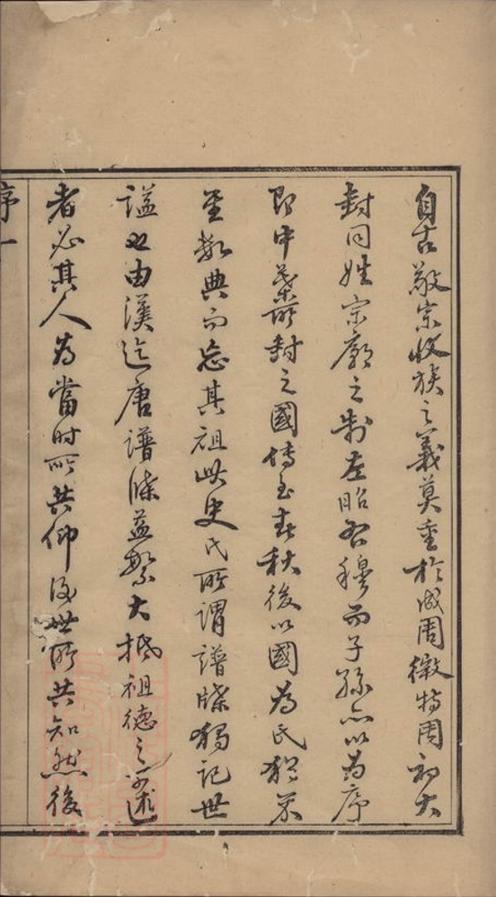 自古敬宗收族之義莫重於成周微特周初大
封同姓宗廟之制左昭右穆而子孫亦以為序
即中葉所封之國傳至春秋後以國為氏猶不
至數典而忘其祖此史氏所謂譜牒獨記世
謚也由漢迄唐譜牒益繁大抵祖德之可述
者必其人為當時所共仰後世所共知然後
序一